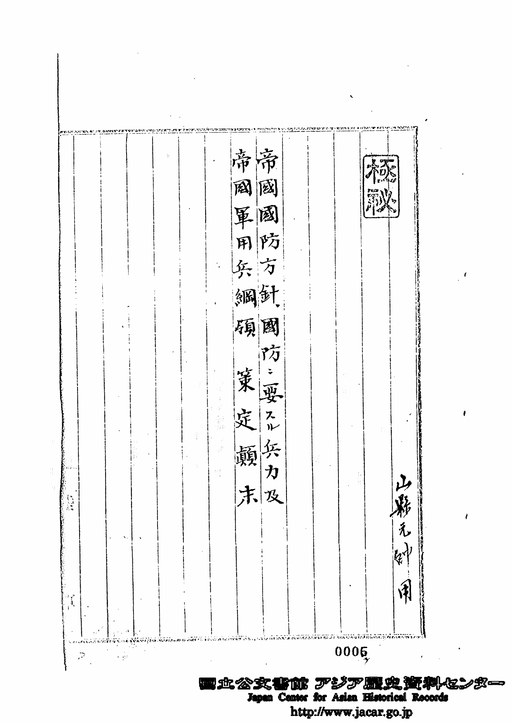 極秘
山縣元帥用
帝國國防方針、國防ニ要スル兵力及
帝國軍用兵綱領策定顛末
0006
國立公文書館 アジア歴史資料センター
Japan Center for Asian Historical Records
http://www.jacar.go.jp